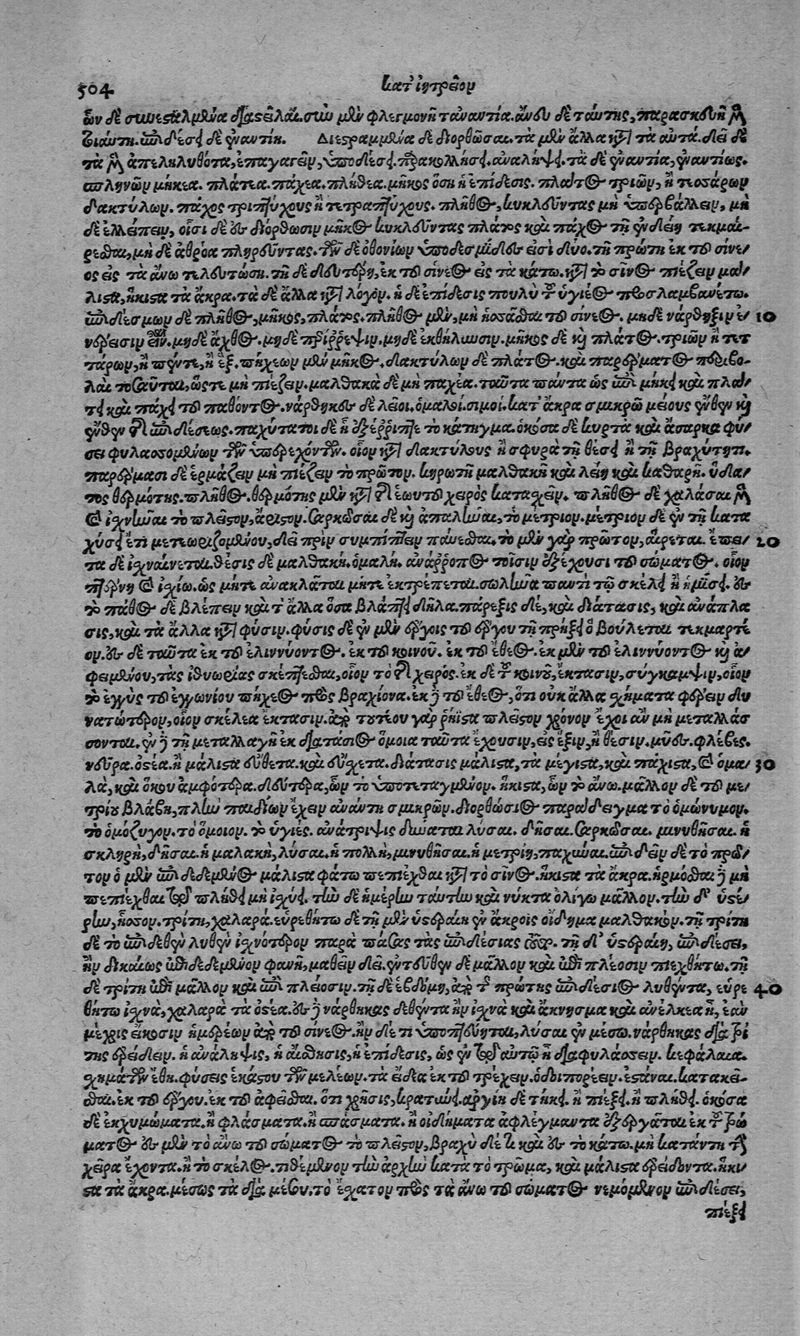 504 κατ' ἰητρεῖον
ὧν δὲ συνεσταλμένα διαστεῖλαι. σὺν μὲν φλεγμονῇ τἀναντία. ἄνευ δὲ ταύτης, παρασκευῇ μὲν
τοιαύτῃ. ἐπιδέσει δὲ ἐναντίῃ. Διεστραμμένα δὲ διορθῶσαι. τὰ μὲν ἄλλα κατὰ τὰ αὐτά. δεῖ δὲ
τὰ μὲν ἀπεληλυθότα, ἐπαγαγεῖν, ὑποδέσει. παρακολλήσει. ἀναλήψει. τὰ δὲ ἐναντία, ἐναντίως.
σπληνῶν μήκεα. πλάτεα. πάχεα. πλήθεα. μῆκος ὅση ἡ ἐπίδεσις. πλάτος τριῶν, ἢ τεσσάρων
δακτύλων. πάχος τριπτύχους ἢ τετραπτύχους. πλῆθος, κυκλεῦντας μὴ ὑπερβάλλειν, μὴ
δὲ ἐλλείπειν, οἷσι δὲ ἐς διόρθωσιν μῆκος κυκλεῦντας πλάτος καὶ πάχος τῇ ἐνδείῃ τεκμαί-
ρεσθαι, μὴ δὲ ἀθρόα πληρεῦντας. τῶν δὲ ὀθονίων ὑποδεσμίδες εἰσὶ δύο. τῇ πρώτῃ ἐκ τοῦ σίνε-
ος εἰς τὰ ἄνω τελευτώσῃ. τῇ δὲ δευτέρῃ, ἐκ τοῦ σίνεος εἰς τὰ κάτω. κατὰ τὸ σῖνος πιέζειν μά-
λιστα, ἥκιστα τὰ ἄκρα. τὰ δὲ ἄλλα κατὰ λόγον. ἡ δὲ ἐπίδεσις πουλὺ τοῦ ὑγιέος προσλαμβανέτω.
ἐπιδέσμων δὲ πλῆθος, μῆκος, πλάτος. πλῆθος μὲν, μὴ ἡσσᾶσθαι τοῦ σίνεος. μηδὲ νάρθηξιν ἐ- 10
νέρεισιν εἶναι. μηδὲ ἄχθος. μηδὲ περίρρεψιν. μηδὲ ἐκθήλυνσιν. μῆκος δὲ καὶ πλάτος. τριῶν ἢ τετ-
τάρων, ἢ πέντε, ἢ ἓξ. πήχεων μὲν μῆκος. δακτύλων δὲ πλάτος. καὶ παρέρματος περιβο-
λαὶ τοσαῦται, ὥστε μὴ πιέζειν. μαλθακὰ δὲ μὴ παχέα. ταῦτα πάντα ὡς ἐπὶ μήκει καὶ πλά-
τει καὶ πάχει τοῦ παθόντος. νάρθηκες δὲ λεῖοι. ὁμαλοί. σιμοί. κατ' ἄκρα σμικρῷ μείους ἔνθεν καὶ
ἔνθεν τῆς ἐπιδέσεως. παχύτατοι δὲ ᾗ ἐξέρριπτε τὸ κάτηγμα. ὁκόσα δὲ κυρτὰ καὶ ἄσαρκα φύ-
σει φυλασσομένων τῶν ὑπερεχόντων. οἷον κατὰ δακτύλους ἢ σφυρὰ τῇ θέσει ἢ τῇ βραχύτητι.
παρέρμασι δὲ ἑρμάζειν μὴ πιέζειν τὸ πρῶτον. κηρωτῇ μαλθακῇ καὶ λείῃ καὶ καθαρῇ. ὕδα-
τος θερμότης. πλῆθος. θερμότης μὲν κατὰ τῆς ἑωυτοῦ χειρὸς καταχεῖν. πλῆθος δὲ χαλάσαι μὲν
καὶ ἰσχνῆναι τὸ πλεῖστον, ἄριστον. σαρκῶσαι δὲ καὶ ἁπαλῦναι, τὸ μέτριον. μέτριον δὲ ἐν τῇ κατα-
χύσει ἔτι μετεωριζομένου, δεῖ πρὶν συμπίπτειν παύεσθαι. τὸ μὲν γὰρ πρῶτον, αἴρεται. ἔπει- 20
τα δὲ ἰσχναίνεται. θέσις δὲ μαλθακή. ὁμαλή. ἀνάρροπος τοῖσιν ἐξέχουσι τοῦ σώματος. οἷον
πτέρνῃ καὶ ἰσχίῳ. ὡς μήτε ἀνακλᾶται μήτε ἐκτρέπεται. σωλῆνα παντὶ τῷ σκέλει ἢ ἡμίσει. ἐς
τὸ πάθος δὲ βλέπειν καὶ τἄλλα ὅσα βλάπτει δῆλα. πάρεξις δὲ, καὶ διάτασις, καὶ ἀνάπλα-
σις, καὶ τὰ ἄλλα κατὰ φύσιν. φύσις δὲ ἐν μὲν ἔργοις τοῦ ἔργου τῇ πρήξει ὃ βούλεται τεκμαρτέ-
ον. ἐς δὲ ταῦτα ἐκ τοῦ ἐλιννύοντος. ἐκ τοῦ κοινοῦ. ἐκ τοῦ ἔθεος. ἐκ μὲν τοῦ ἐλιννύοντος καὶ ἀ-
φειμένου, τὰς ἰθυωρίας σκέπτεσθαι, οἷον τὸ τῆς χειρός. ἐκ δὲ τοῦ κοινοῦ, ἔκτασιν, σύγκαμψιν, οἷον
τὸ ἐγγὺς τοῦ ἐγγωνίου πήχεος πρὸς βραχίονα. ἐκ δὲ τοῦ ἔθεος, ὅτι οὐκ ἄλλα σχήματα φέρειν δυ-
νατώτερον, οἷον σκέλεα ἔκτασιν. ἀπὸ τούτων γὰρ ῥήϊστα πλεῖστον χρόνον ἔχοι ἂν μὴ μεταλλάσ-
σονται. ἐν δὲ τῇ μεταλλαγῇ ἐκ διατάσιος ὅμοια ταῦτα ἔχουσιν, εἰς ἕξιν, ἢ θέσιν. μῦες. φλέβες.
νεῦρα. ὀστέα. ἢ μάλιστα εὔθετα. καὶ εὔσχετα. διάτασις μάλιστα, τὰ μέγιστα, καὶ πάχιστα, καὶ ὅμα- 30
λα, καὶ ὅκου ἀμφότερα. δεύτερα, ὧν τὸ ὑποτεταγμένον. ἥκιστα, ὧν τὸ ἄνω. μᾶλλον δὲ τοῦ με-
τρίου βλάβη, πλὴν παιδίων ἔχειν ἀνάντη σμικρῶν. διορθώσιος παράδειγμα τὸ ὁμώνυμον.
τὸ ὁμόζυγον. τὸ ὅμοιον. τὸ ὑγιές. ἀνάτριψις δύναται λῦσαι. δῆσαι. σαρκῶσαι. μινυθῆσαι. ἡ
σκληρὴ, δῆσαι. ἡ μαλακὴ, λῦσαι. ἡ πολλὴ, μινυθῆσαι. ἡ μετρίη, παχῦναι. ἐπιδεῖν δὲ τὸ πρῶ-
τον ὁ μὲν ἐπιδεδεμένος μάλιστα φάτω πεπιέχθαι κατὰ τὸ σῖνος. ἥκιστα τὰ ἄκρα. ἡρμόσθαι δὲ μὴ
πεπιέχθαι τῷ πλήθει μὴ ἰσχύϊ. τὴν δὲ ἡμέρην ταύτην καὶ νύκτα ὀλίγῳ μᾶλλον. τὴν δ' ὑστέ-
ρην, ἧσσον. τρίτῃ, χαλαρά. εὑρεθήτω δὲ τῇ μὲν ὑστεραίῃ ἐν ἄκροις οἴδημα μαλθακόν. τῇ τρίτῃ
δὲ τὸ ἐπιδεθὲν λυθὲν ἰσχνότερον παρὰ πάσας τὰς ἐπιδέσιας τοῦτο. τῇ δ' ὑστεραίῃ, ἐπιδέσει,
ἢν δικαίως ἐπιδεδεμένον φανῇ, μαθεῖν δεῖ. ἐντεῦθεν δὲ μᾶλλον καὶ ἐπὶ πλέοσιν πιεχθήτω. τῇ
δὲ τρίτῃ ἐπὶ μᾶλλον καὶ ἐπὶ πλείοσιν. τῇ δὲ ἑβδόμῃ, ἀπὸ τῆς πρώτης ἐπιδέσιος λυθέντα, εὑρε- 40
θήτω ἰσχνὰ, χαλαρὰ τὰ ὀστέα. ἐς δὲ νάρθηκας δεθέντα ἢν ἰσχνὰ καὶ ἄκνησμα καὶ ἀνέλκεα ᾖ, ἐᾶν
μέχρις εἴκοσιν ἡμερέων ἀπὸ τοῦ σίνεος. ἢν δέ τι ὑποπτεύηται, λῦσαι ἐν μέσῳ. νάρθηκας διὰ τρί-
της ἐρείδειν. ἡ ἀνάληψις, ἡ ἄθησις, ἡ ἐπίδεσις, ὡς ἐν τῷ αὐτῷ ᾖ διαφυλάσσειν. κεφάλαια.
σχημάτων ἔθη. φύσεις ἑκάστου τῶν μελέων. τὰ εἴδεα ἐκ τοῦ τρέχειν. ὁδοιπορέειν. ἑστάναι. κατακεῖ-
σθαι. ἐκ τοῦ ἔργου. ἐκ τοῦ ἀφεῖσθαι. ὅτι χρῆσις, κρατύνει. ἀργίη δὲ τήκει. ἡ πιέξει. ἢ πλήθει. ὁκόσα
δὲ ἐκχυμώματα. ἢ φλάσματα. ἢ σπάσματα. ἢ οἰδήματα ἀφλέγμαντα ἐξεργᾶται ἐκ τοῦ τρώ-
ματος ἐς μὲν τὸ ἄνω τοῦ σώματος τὸ πλεῖστον, βραχὺ δέ τι καὶ ἐς τὸ κάτω. μὴ κατάντη τὴν
χεῖρα ἔχοντα. ἢ τὸ σκέλος. τιθέμενον τὴν ἀρχὴν κατὰ τὸ τρῶμα, καὶ μάλιστα ἐρείδοντα. ἥκι-
στα τὰ ἄκρα. μέσως τὰ διὰ μέσου. τὸ ἔσχατον πρὸς τὰ ἄνω τοῦ σώματος νεμόμενον ἐπιδέσει,
πιέξει